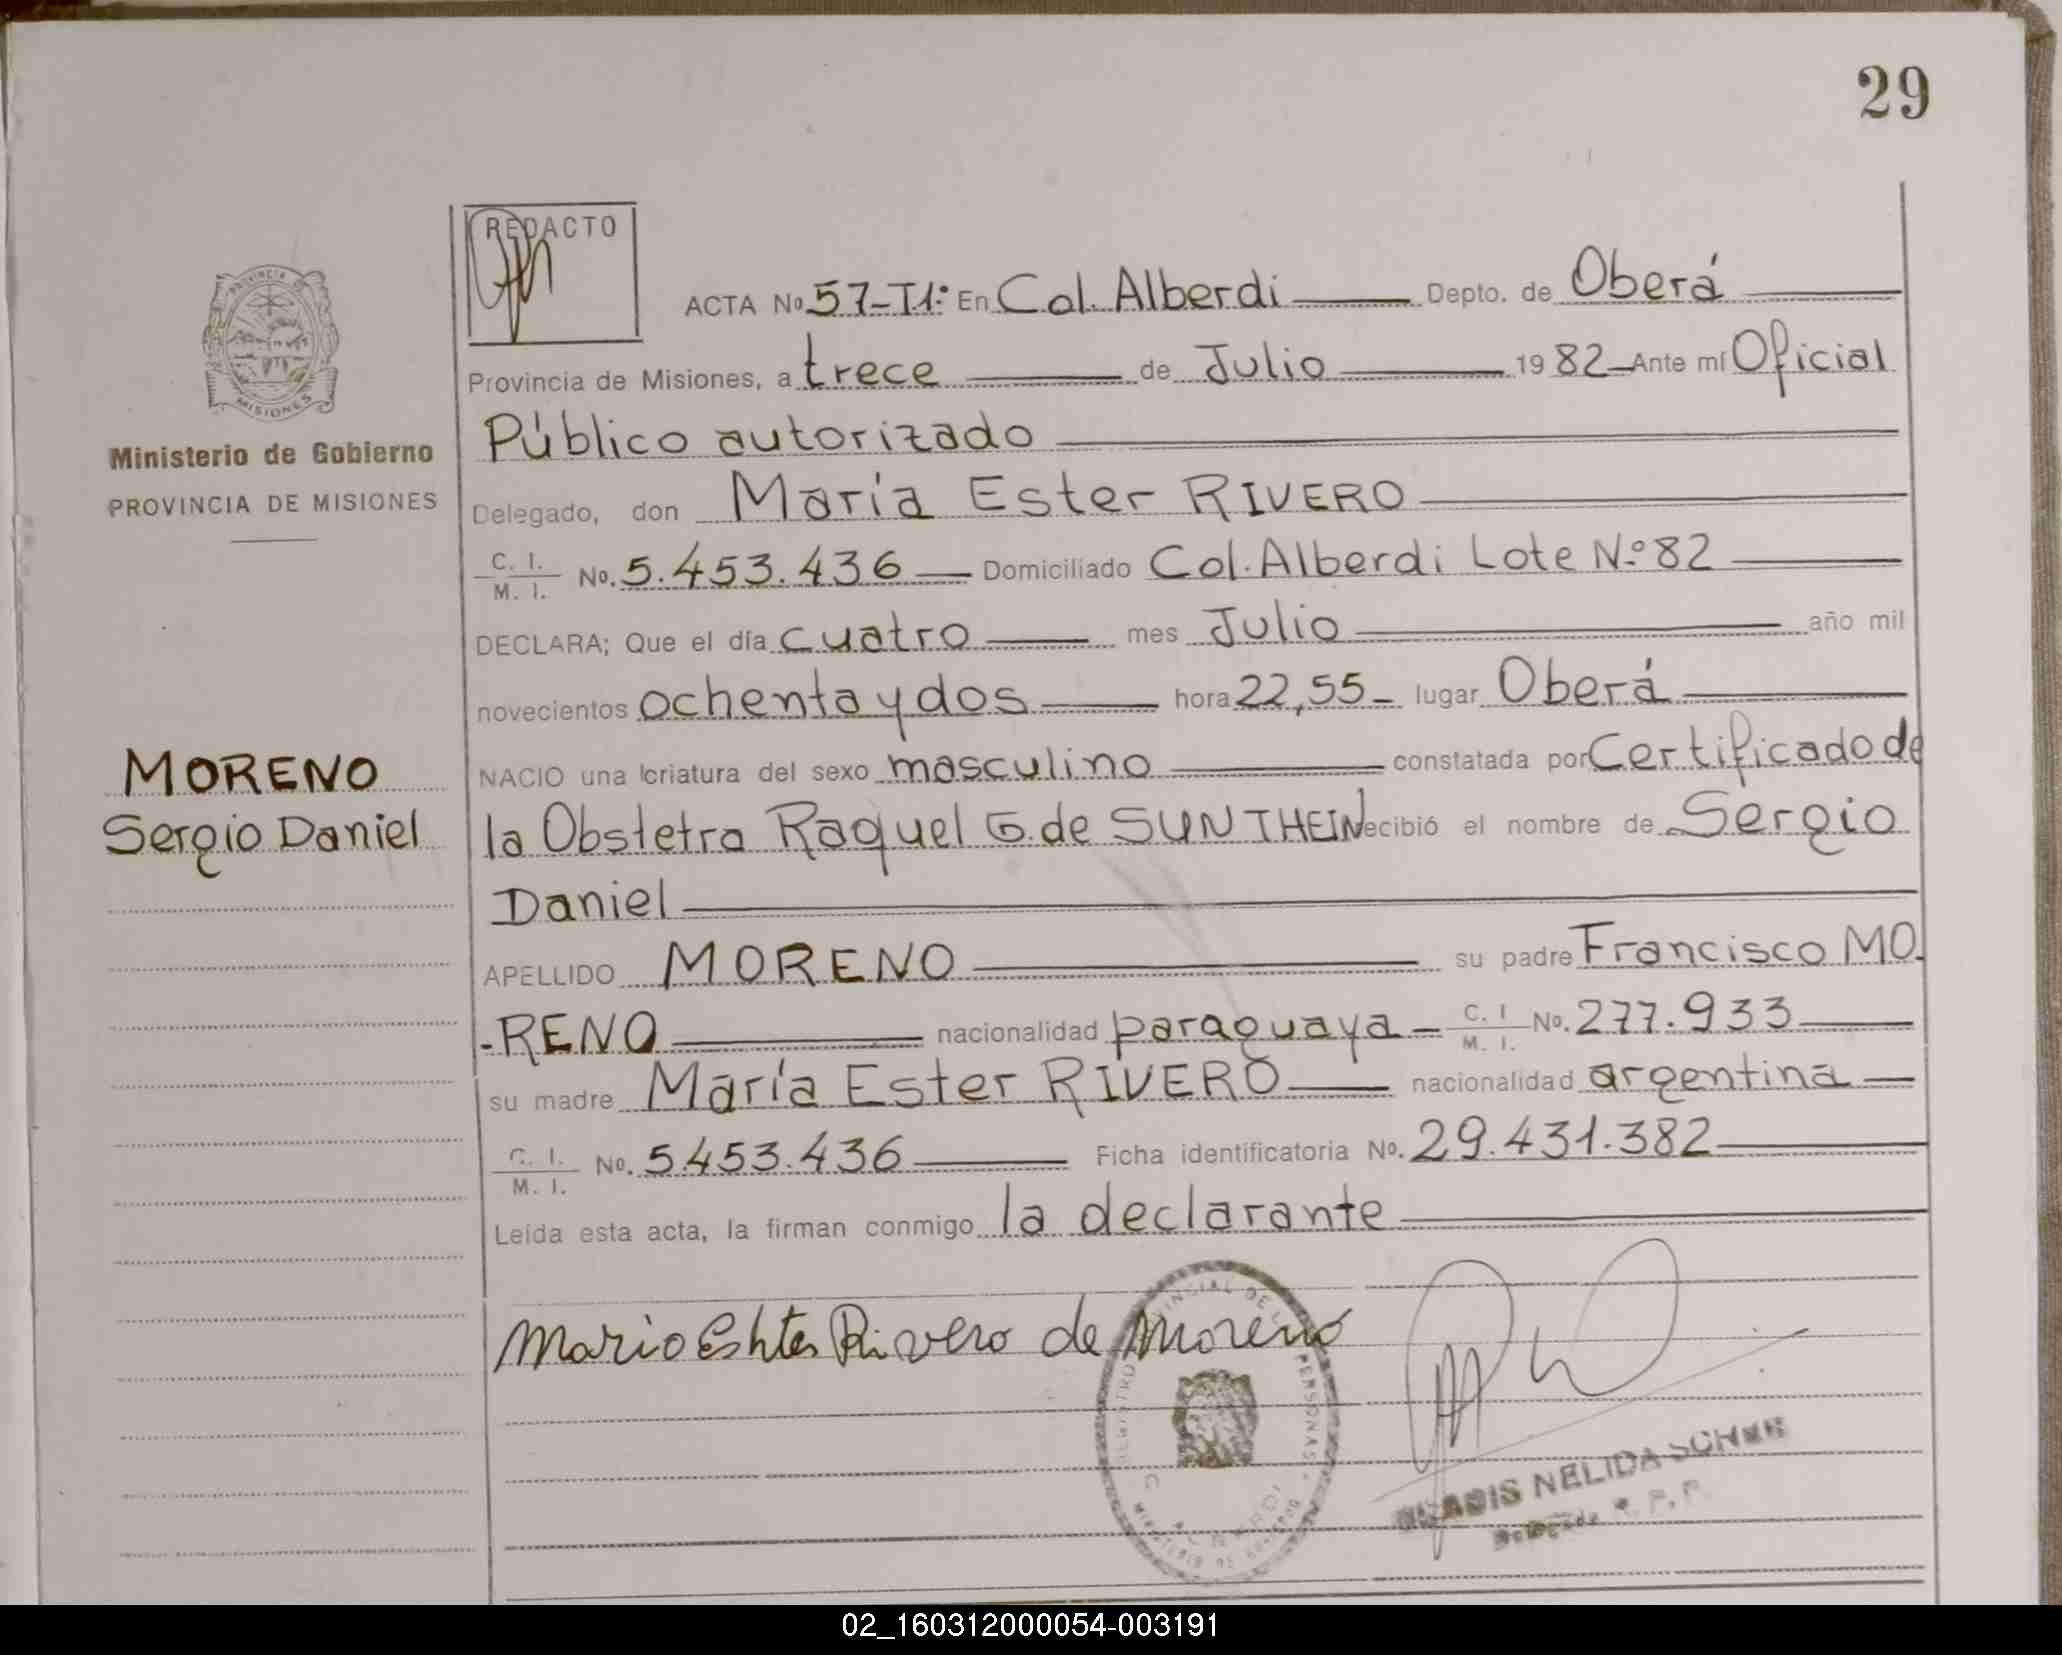 29
REDACTO
ACTA No. 57-T1: En Col. Alberdi Depto. de Oberá
Provincia de Misiones, a trece de Julio 1982 Ante mí Oficial
Público autorizado
Delegado, don María Ester RIVERO
C. I.
M. I. No. 5.453.436 Domiciliado Col. Alberdi Lote N.º 82
DECLARA; Que el día cuatro mes Julio año mil
novecientos ochenta y dos hora 22,55 lugar Oberá
NACIO una criatura del sexo masculino constatada por Certificado de
la Obstetra Raquel G. de SUNTHEIN ecibió el nombre de Sergio
Daniel
APELLIDO MORENO su padre Francisco MO-
-RENO nacionalidad paraguaya C. I
M. I. No. 277.933
su madre María Ester RIVERO nacionalidad argentina
C. I.
M. I. No. 5.453.436 Ficha identificatoria No. 29.431.382
Leída esta acta, la firman conmigo la declarante
PROVINCIA
MISIONES
Ministerio de Gobierno
PROVINCIA DE MISIONES
MORENO
Sergio Daniel
Maria Ester Rivero de Moreno
REGISTRO PROVINCIAL DE LAS PERSONAS
MINISTERIO DE GOBIERNO
GLADIS NELIDA
Delegada R. P. P.
02_160312000054-003191